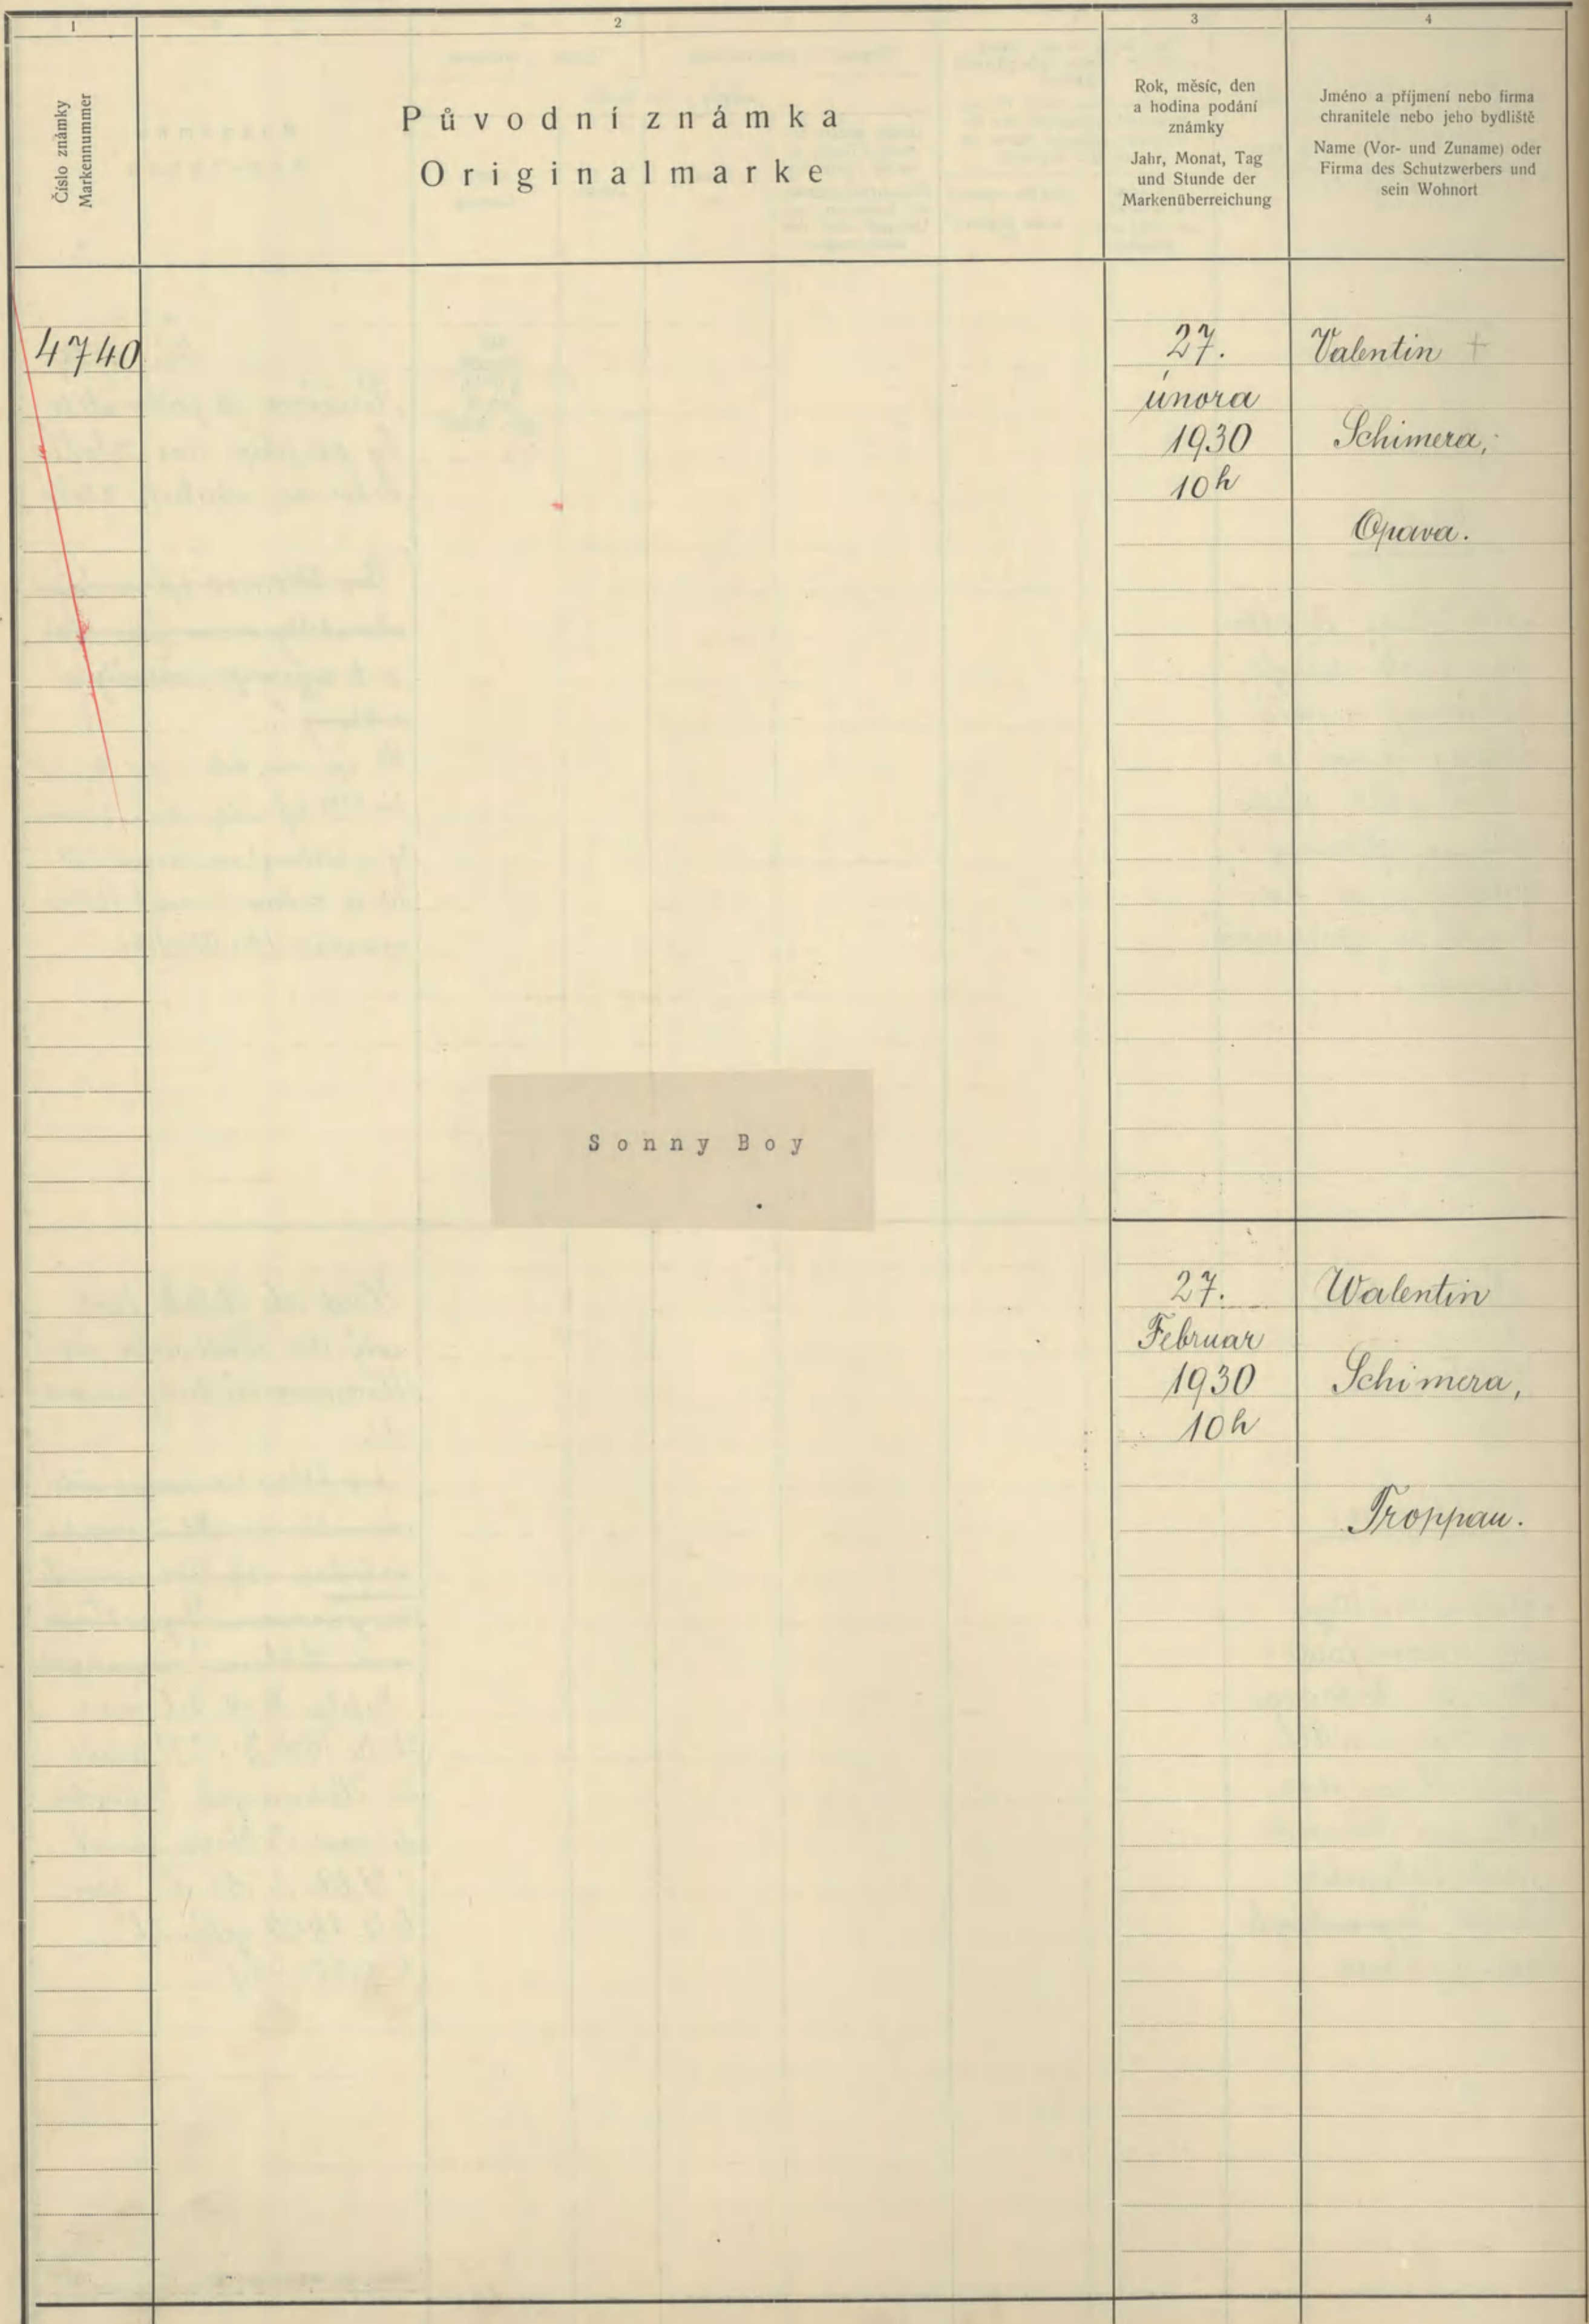 1
2
3
4
Číslo známky
Markennummer
Původní známka
Originalmarke
Rok, měsíc, den
a hodina podání
známky
Jahr, Monat, Tag
und Stunde der
Markenüberreichung
Jméno a příjmení nebo firma
chranitele nebo jeho bydliště
Name (Vor- und Zuname) oder
Firma des Schutzwerbers und
sein Wohnort
4740
27.
února
1930
10h
Valentin
Schimera,
Opava.
Sonny Boy
27.
Februar
1930
10h
Walentin
Schimera,
Troppau.